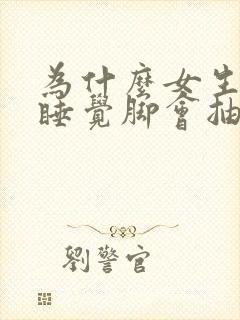 為什麼女生
睡覺腳會抽
劉警官